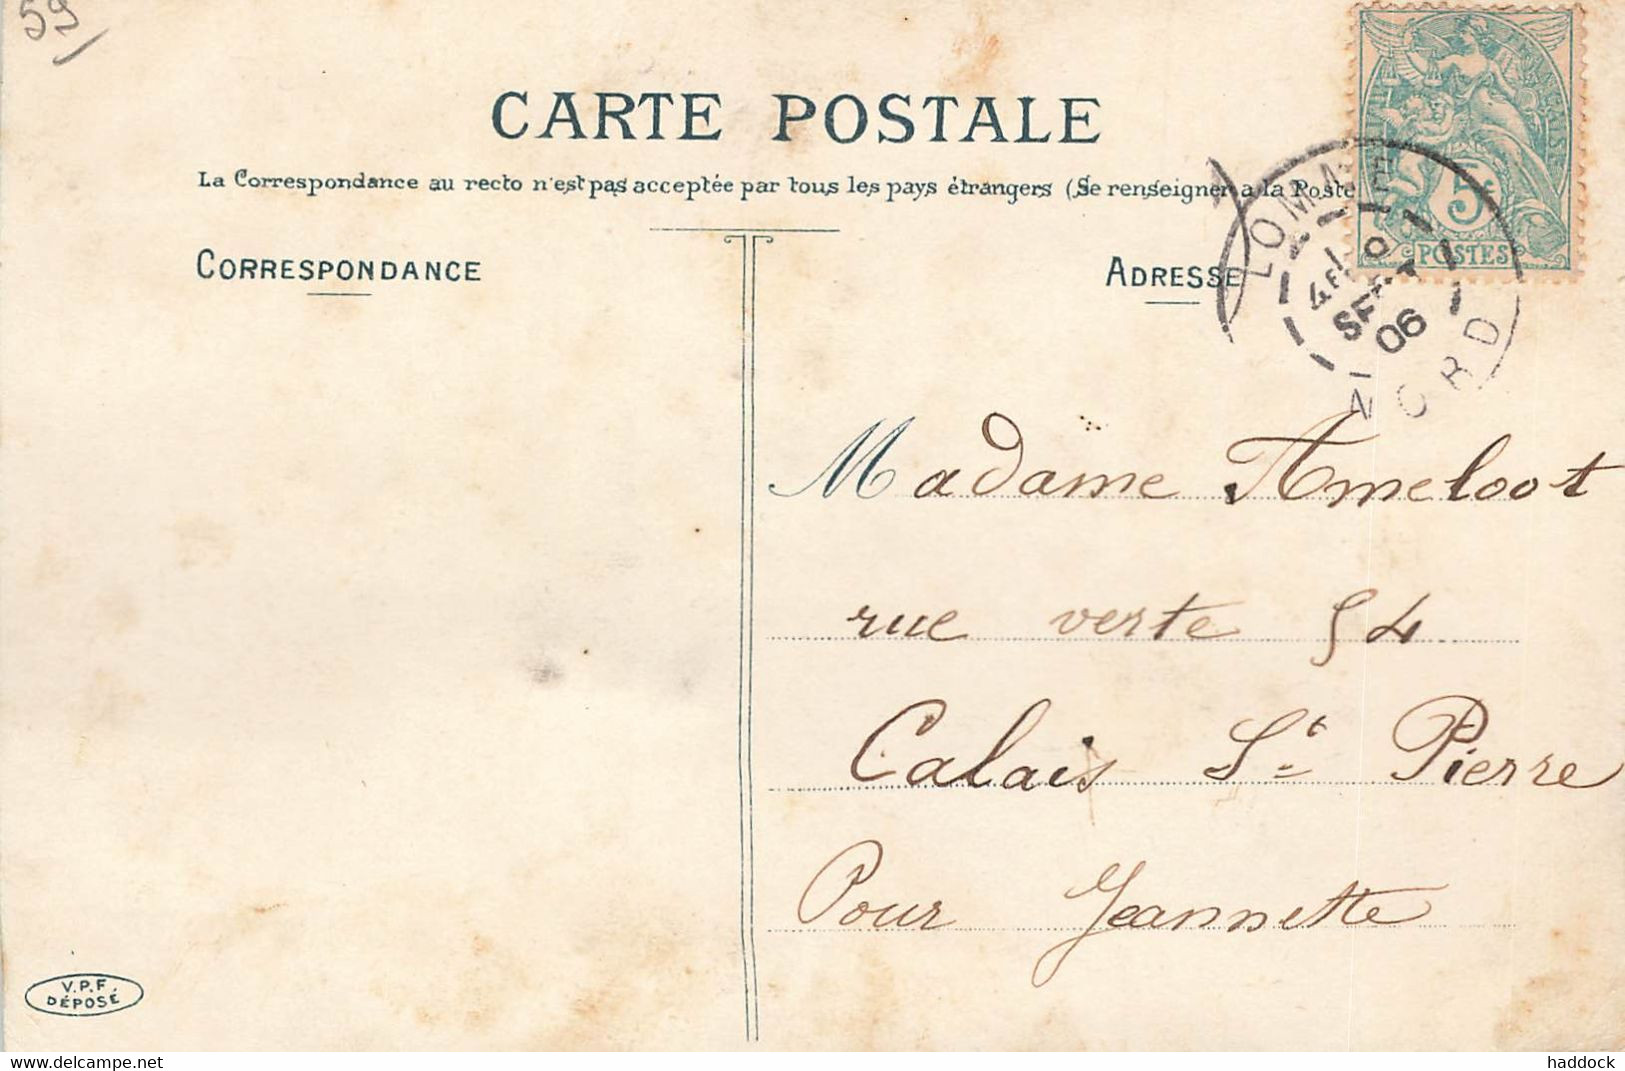 59
CARTE POSTALE
La Correspondance au recto n'est pas acceptée par tous les pays étrangers (Se renseigner a la Poste
CORRESPONDANCE
ADRESSE
5c
POSTES
SEPT
06
NORD
Madame Ameloot
rue verte 54
Calais St Pierre
Pour Jeannette
V.P.F.
DÉPOSÉ
www.delcampe.net
haddock